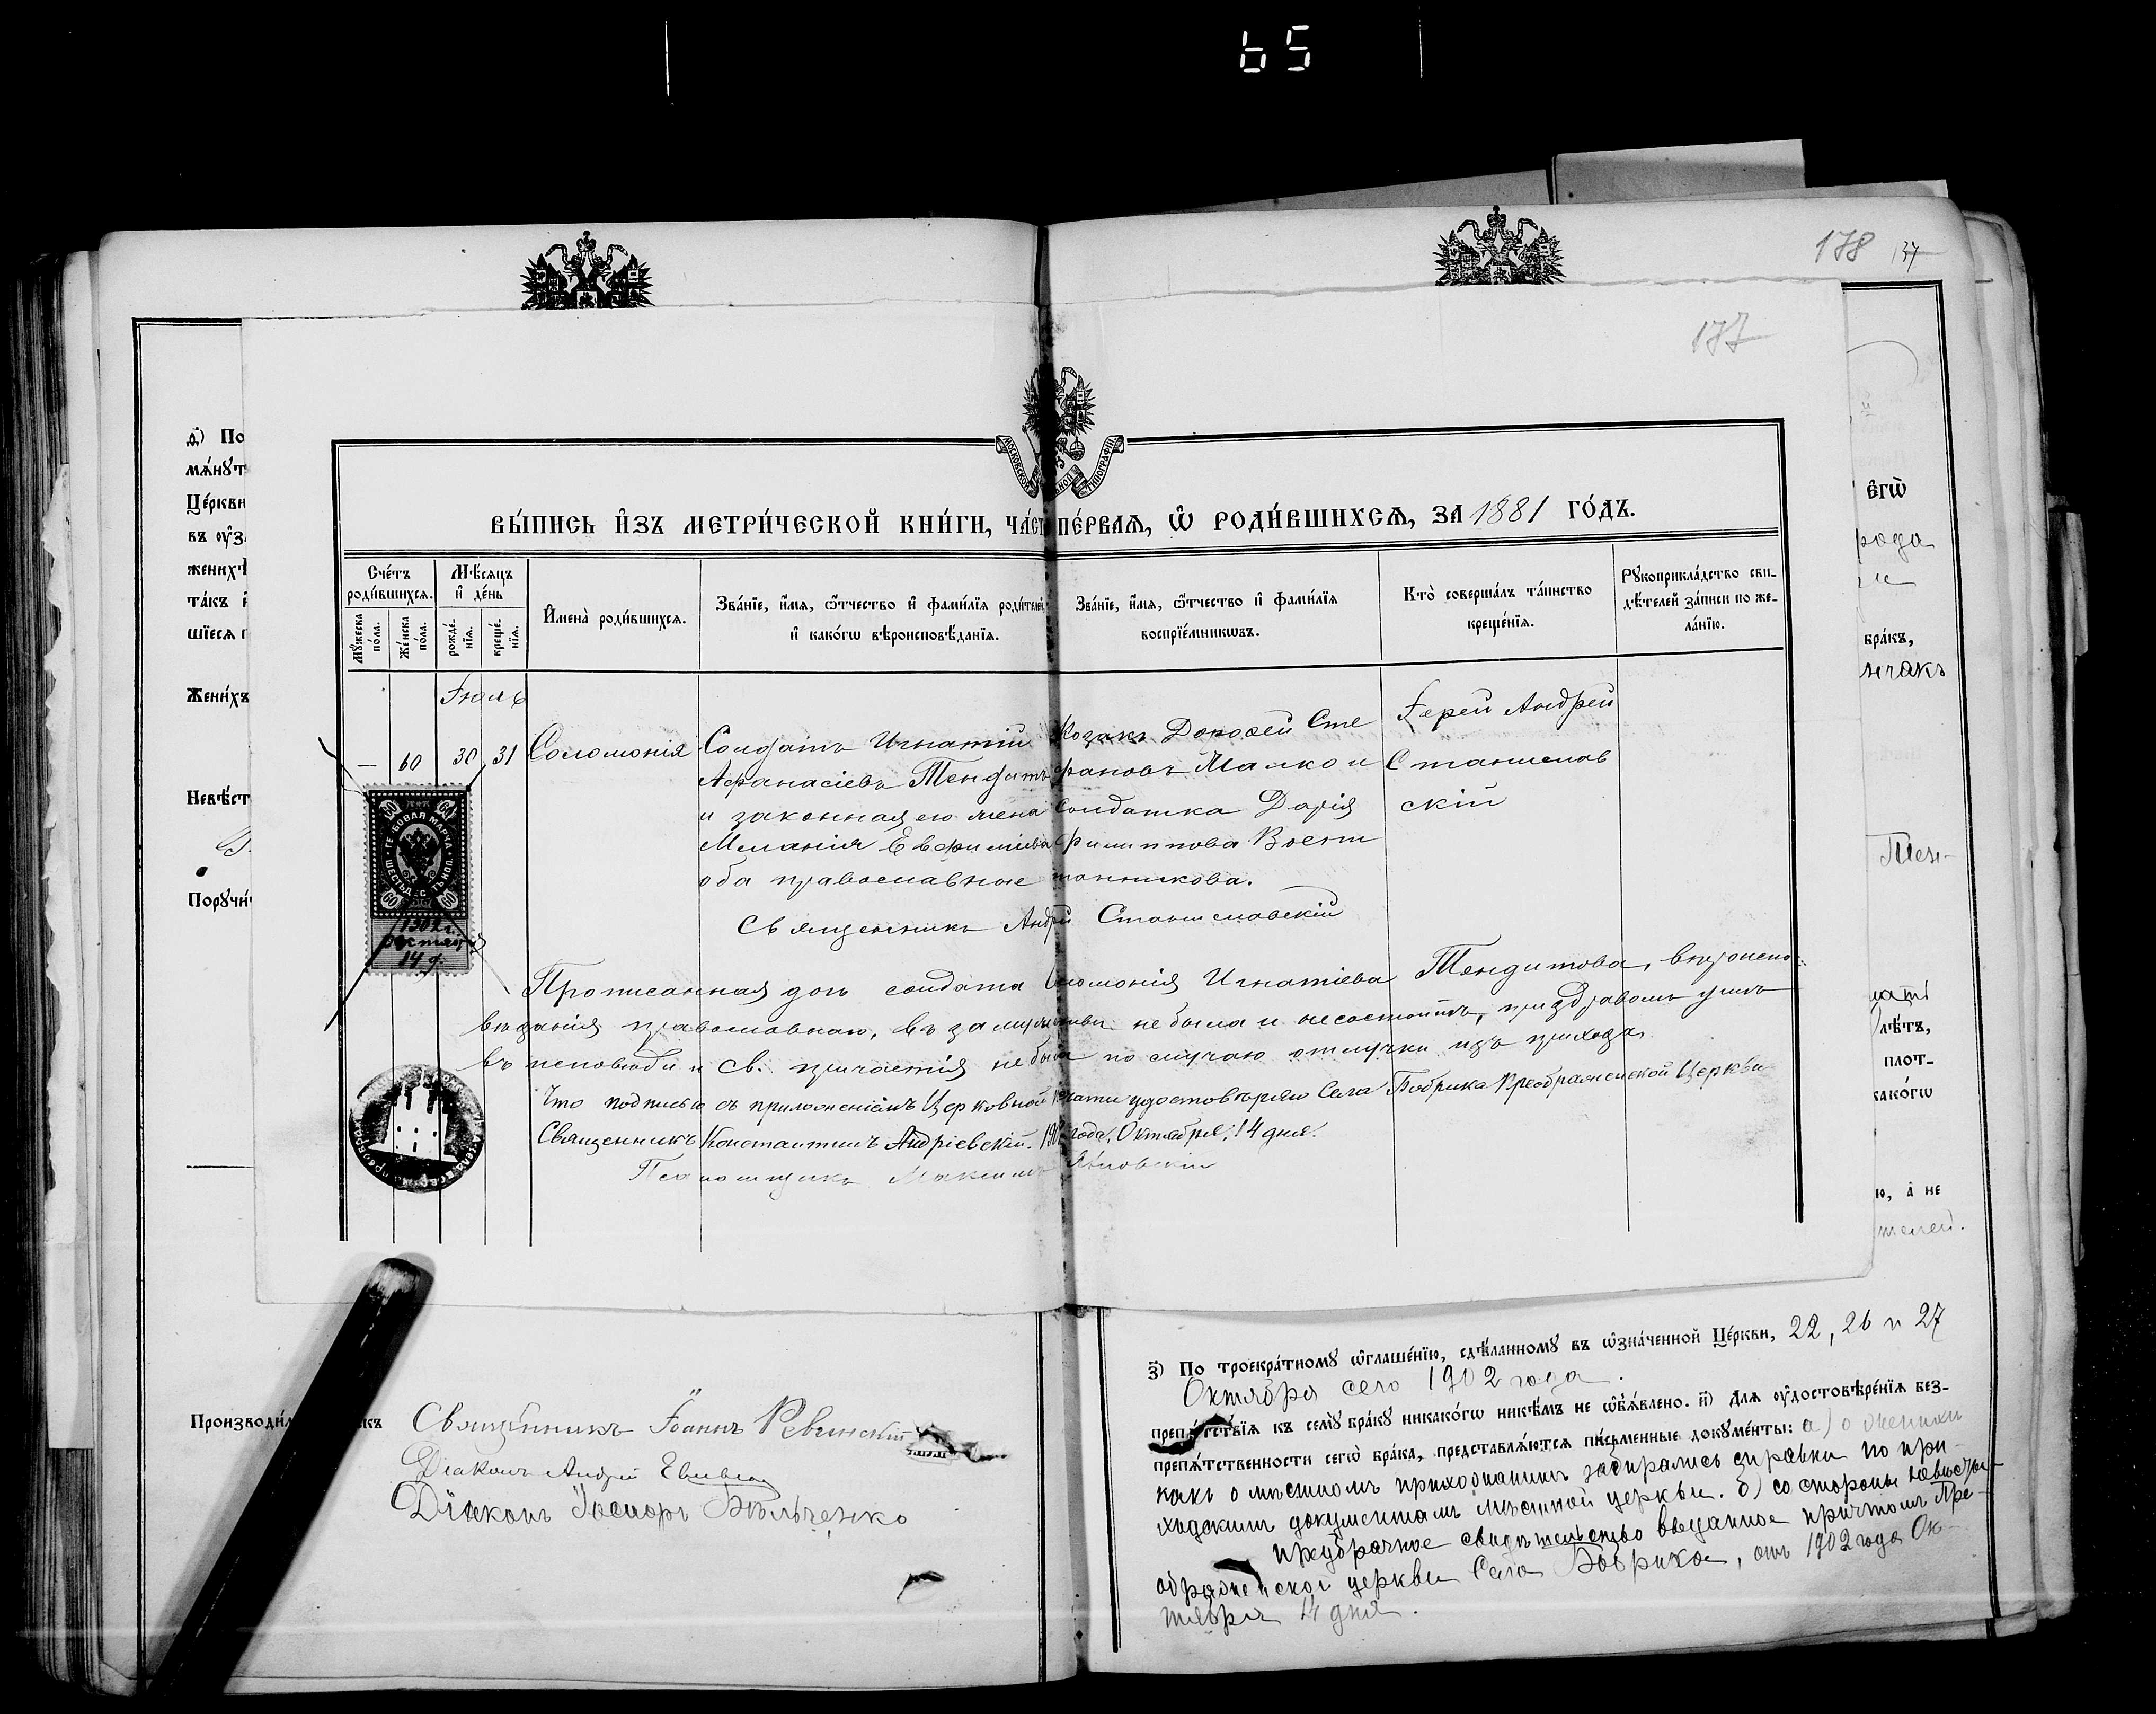 65
178 137
177
МОСКОВСКОЙ СѴНОДАЛЬНОЙ ТИПОГРАФІИ
ВЫ́ПИСЬ И҆ЗЪ МЕТРИ́ЧЕСКОЙ КНИ́ГИ, ЧА́СТЬ ПЕ́РВАѦ, Ѡ҆ РОДИ́ВШИХСѦ, ЗА 1881 ГО́ДЪ.
Сче́тъ роди́вшихсѧ.
Мужеска по́ла.
Же́нска по́ла.
Мѣ́сѧцъ и҆ де́нь
рожде́нїѧ.
креще́нїѧ.
И҆мена̀ роди́вшихсѧ.
Зва́нїе, и҆́мѧ, ѻ҆́тчество и҆ фами́лїѧ роди́телей, и҆ како́гѡ вѣроисповѣ́данїѧ.
Зва́нїе, и҆́мѧ, ѻ҆́тчество и҆ фами́лїѧ воспрїе́мникѡвъ.
Кто̀ соверша́лъ та́инство креще́нїѧ.
Рукоприкла́дство свидѣ́телей за́писи по жела́нїю.
Іюль
— 60 30 31 Соломонія
Солдатъ Игнатій
Афанасіевъ Тендитъ
и законная его жена
Меланія Евфиміева
оба православные
Козакъ Дорофей Сте
фановъ Малко и
солдатка Дарія
Филиппова Воент
онникова.
Іерей Андрей
Станислав
скій
Священникъ Андрей Станиславскій
ГЕРБОВАЯ МАРКА
ШЕСТЬДЕСЯТЬ КОП.
60 60
60 60
1902 г.
октяб
14 д.
Прописанная дочь солдата Соломонія Игнатіева Тендитова, вѣроиспо-
вѣданія православнаго, въ замужествѣ не была и не состоитъ, при здравомъ умѣ
въ исповѣди и св. причастія не была по случаю отлучки изъ прихода
Что подписью съ приложеніемъ Церковной печати удостовѣряю Села Бобрика Преображенской Церкви
Священникъ Константинъ Андріевскій. 1902 года, Октября, 14 дня.
Псаломщикъ Максимъ Яновскій
д҃) По
мѧ́нут
Це́ркви
въ
жених
та́къ
шїесѧ
Жени́хъ
Невѣ́ст
Поручи́
Производи́л
Священникъ Іоаннъ Ревинскій
Діаконъ Андрей
Діаконъ Бѣльченко
є҆гѡ̀
рода
бра́къ,
Тен-
лѣ́тъ,
плот-
како́гѡ
ю, а҆ не
з҃) По троекра́тному ѡ҆глаше́нїю, сдѣ́ланному въ ѡ҆зна́ченной Це́ркви, 22, 26 и 27
Октября сего 1902 года.
препѧ́тствїѧ къ сему̀ бра́ку никако́гѡ никѣ́мъ не ѡ҆б̾ѧ́влено. и҃) Длѧ ᲂу҆достовѣре́нїѧ без-
препѧ́тственности сегѡ̀ бра́ка, представлѧ́ютсѧ пи́сьменные докуме́нты: а) о женихѣ
какъ о мѣстномъ прихожанинѣ забирались справки по при-
ходскимъ документамъ мѣстной церкви. б) со стороны невѣсты
предбрачное свидѣтельство выданное причтомъ Пре-
ображенской церкви Села Бобрика, отъ 1902 года Ок-
тября 14 дня.